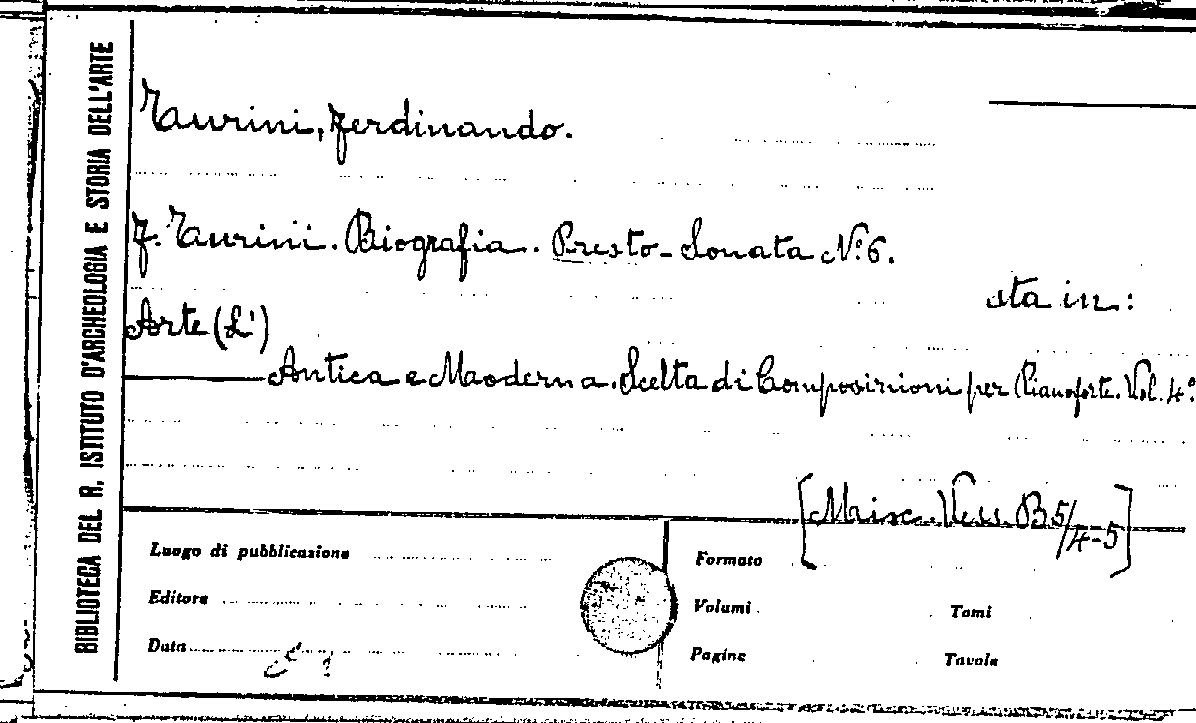 BIBLIOTECA DEL R. ISTITUTO D'ARCHEOLOGIA E STORIA DELL'ARTE
Taurini, Ferdinando.
F. Taurini. Biografia. Presto - Sonata N.º 6.
sta in:
Arte (L')
Antica e Moderna. Scelta di Composizioni per Pianoforte. Vol. 4.º
[Misc. Vess. B 5/4-5]
Luogo di pubblicazione
Editore
Data
Formato
Volumi Tomi
Pagine Tavole